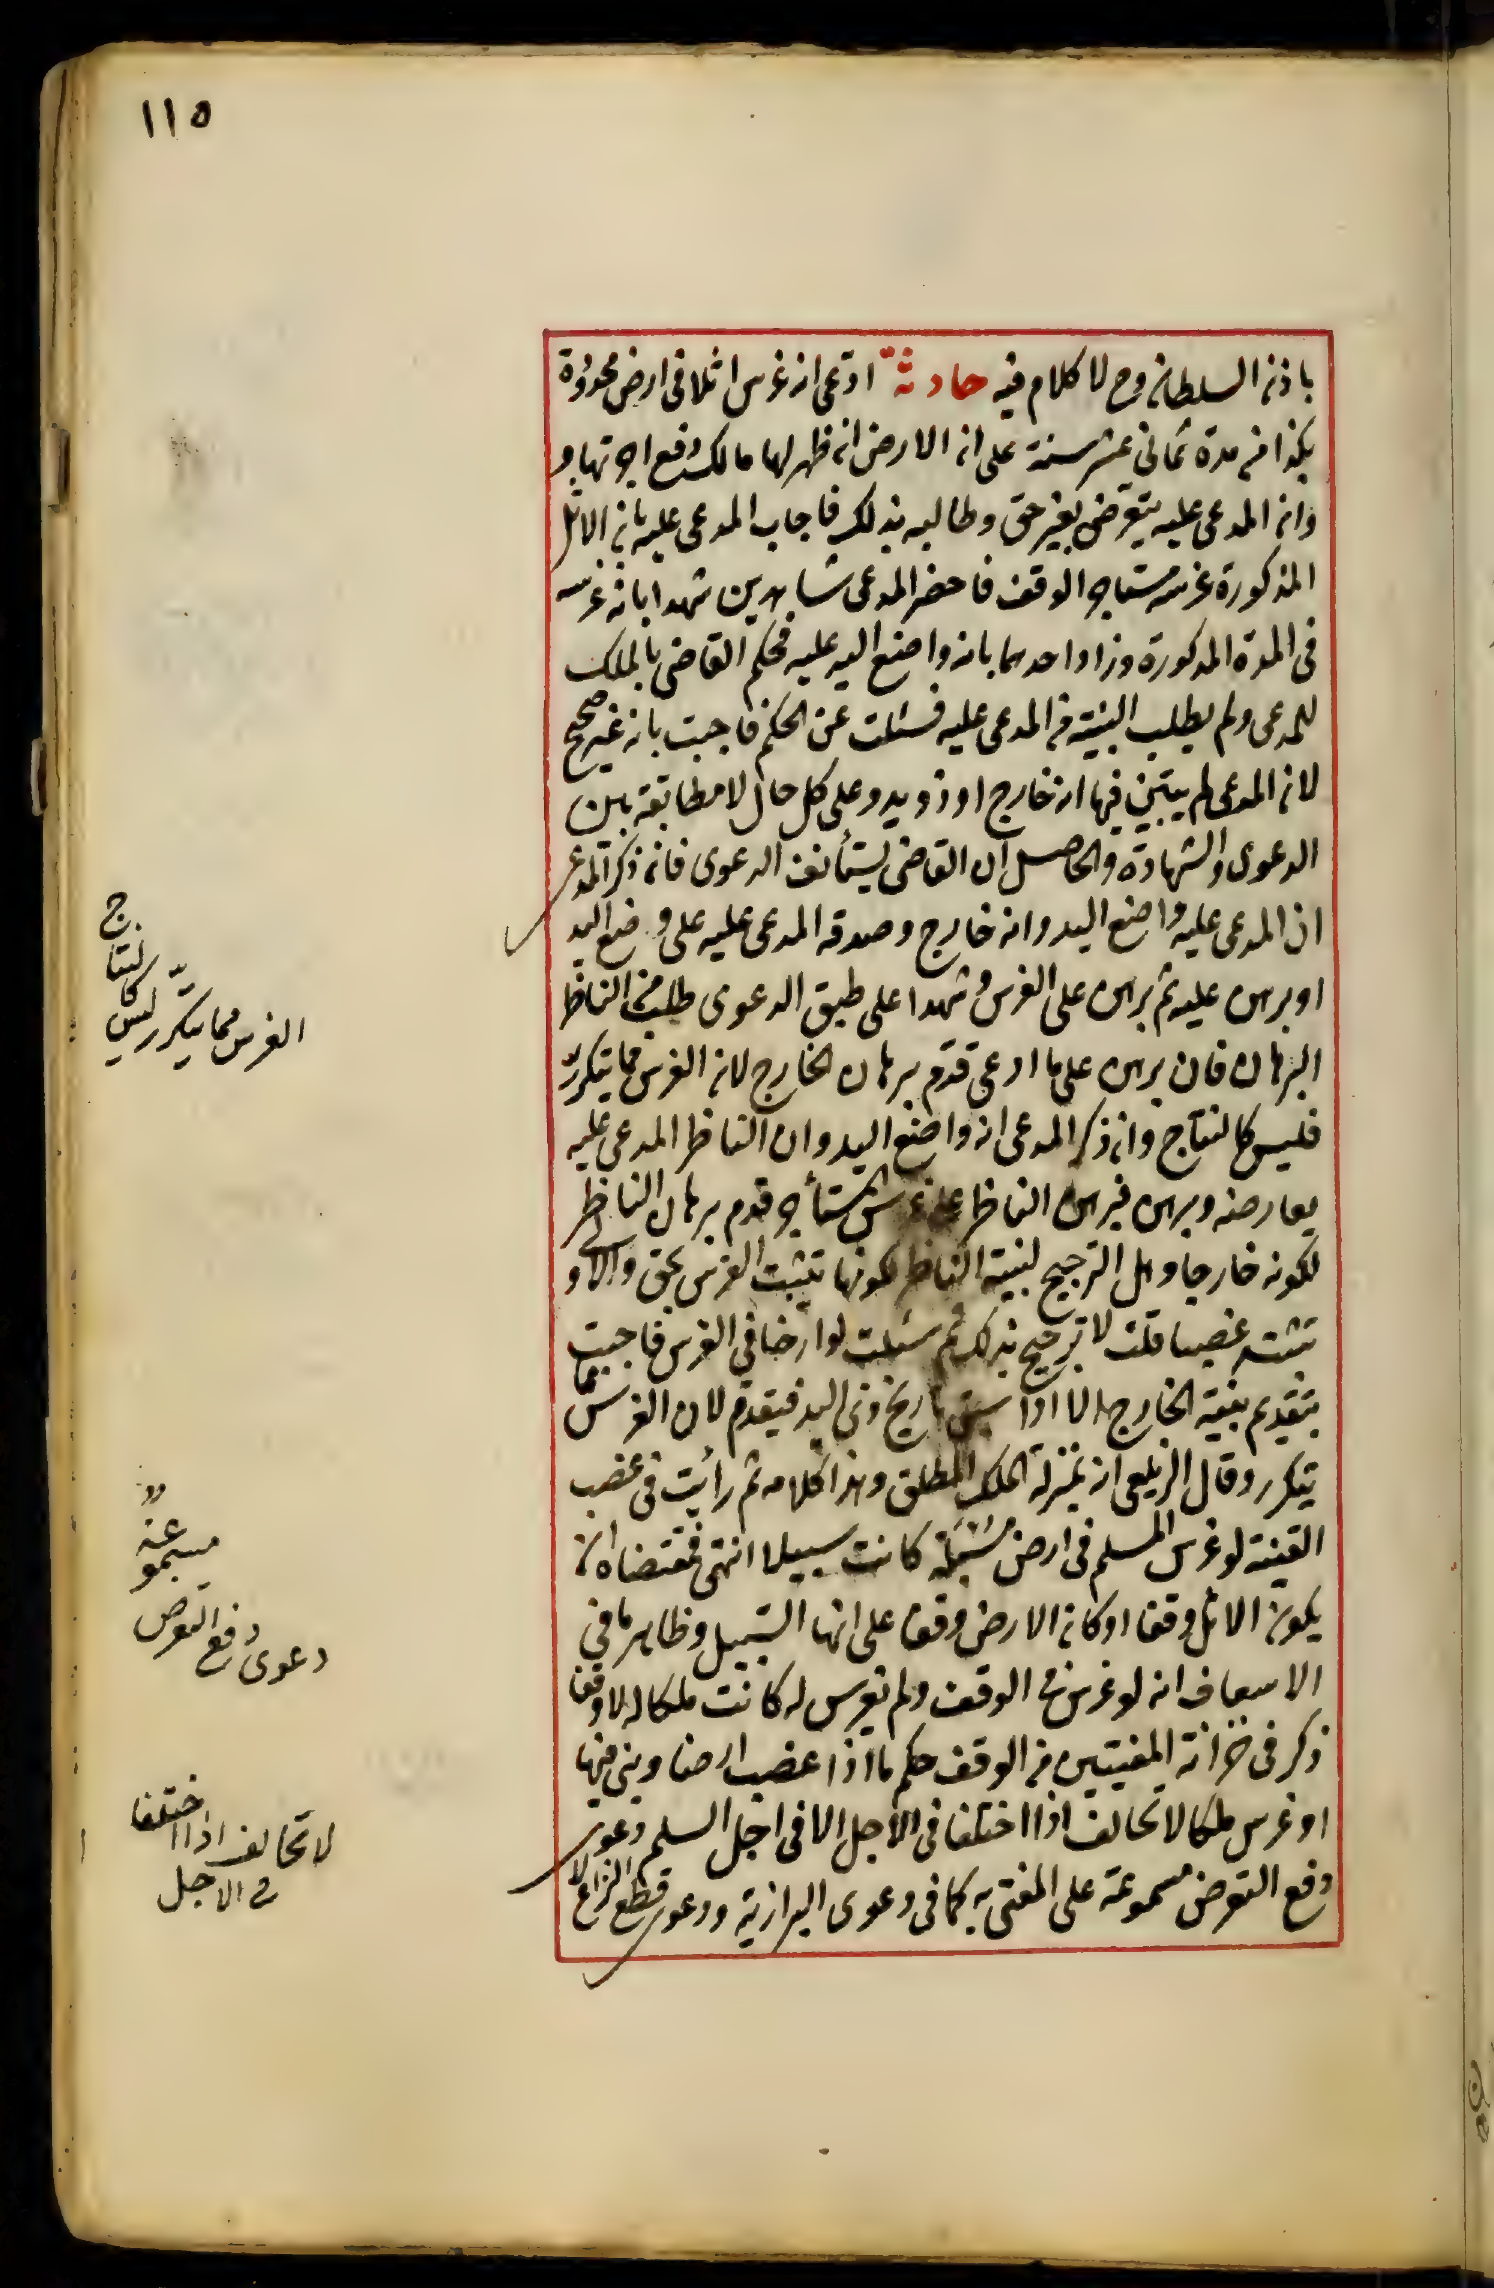 ١١٥
باذن السلطان وح لا كلام فيه حادثة ادعى انه غرس اثلا في ارض محدودة
بكذا من مدة ثماني عشر سنة على ان الارض ان ظهر لها مالك دفع اجرتها و
وان المدعى عليه يتعرض بغير حق وطالبه بذلك فاجاب المدعى عليه بان الاثل
المذكورة غرسه مستاجر الوقف فاحضر المدعى شاهدين شهدا بانه غرسه
في المدة المذكورة وزاد احدهما بانه واضع اليد عليه فحكم القاضي بالملك
للمدعى ولم يطلب البينة من المدعى عليه فسئلت عن الحكم فاجبت بانه غير صحيح
لان المدعى لم يبين فيها انه خارج او ذو يد وعلى كل حال لا مطابقة بين
الدعوى والشهادة والحاصل ان القاضي يستأنف الدعوى فان ذكر المدعى
ان المدعى عليه واضع اليد وانه خارج وصدقه المدعى عليه على وضع اليد
او برهن عليه ثم برهن على الغرس وشهدا على طبق الدعوى طلب من الناظر
البرهان فان برهن على ما ادعى قدم برهان الخارج لان الغرس مما يتكرر
فليس كالنتاج وان ذكر المدعى انه واضع اليد وان الناظر المدعى عليه
يعارضه وبرهن فبرهن الناظر على غرس المستأجر قدم برهان الناظر
لكونه خارجا وهل الترجيح لبينة الناظر لكونها تثبت الغرس بحق والاولى
تثبته غصبا قلت لا ترجيح بذلك ثم سئلت لو ارخا في الغرس فاجبت
بتقديم بينة الخارج الا اذا سبق تاريخ ذي اليد فيقدم لان الغرس مما
يتكرر وقال الزيلعي انه بمنزلة الملك المطلق وهذا كلامه ثم رأيت في غصب
القنية لو غرس المسلم في ارض مسبلة كانت سبيلا انتهى فمقتضاه ان
يكون الاثل وقفا او كان الارض وقفا على انها السبيل وظاهر ما في
الاسعاف انه لو غرس في الوقف ولم يغرس له كانت ملكا له لا وقفا
ذكر في خزانة المفتيين من الوقف حكم ما اذا غصب ارضا وبنى فيها
او غرس ملكا لا تحالف اذا اختلفا في الاجل الا في اجل السلم دعوى
دفع التعرض مسموعة على المفتى به كما في دعوى البزازية ودعوى قطع النزاع لا
الغرس مما يتكرر ليس كالنتاج
دعوى دفع التعرض
مسموعة
لا تحالف اذا اختلفا
في الاجل